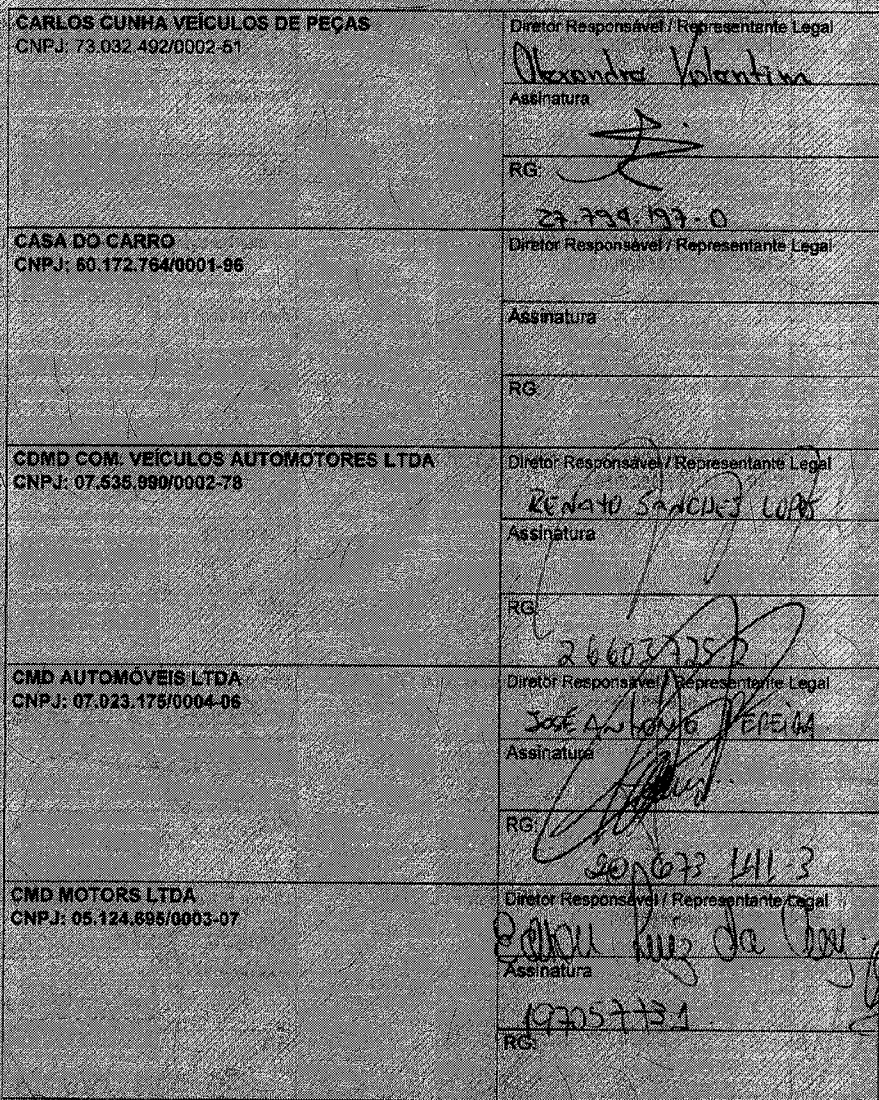 CARLOS CUNHA VEÍCULOS DE PEÇAS
CNPJ: 73.032.492/0002-51
Diretor Responsável / Representante Legal
Alexandre Volantim
Assinatura
RG:
27.794.197-0
CASA DO CARRO
CNPJ: 60.172.764/0001-96
Diretor Responsável / Representante Legal
Assinatura
RG:
CDMD COM. VEÍCULOS AUTOMOTORES LTDA
CNPJ: 07.535.990/0002-78
Diretor Responsável / Representante Legal
RENATO SANCHES LOPES
Assinatura
RG:
CMD AUTOMÓVEIS LTDA
CNPJ: 07.023.175/0004-06
Diretor Responsável / Representante Legal
JOSÉ ANTONIO PEREIRA
Assinatura
RG:
20.673.141-3
CMD MOTORS LTDA
CNPJ: 05.124.695/0003-07
Diretor Responsável / Representante Legal
Luiz da
Assinatura
197057731
RG: